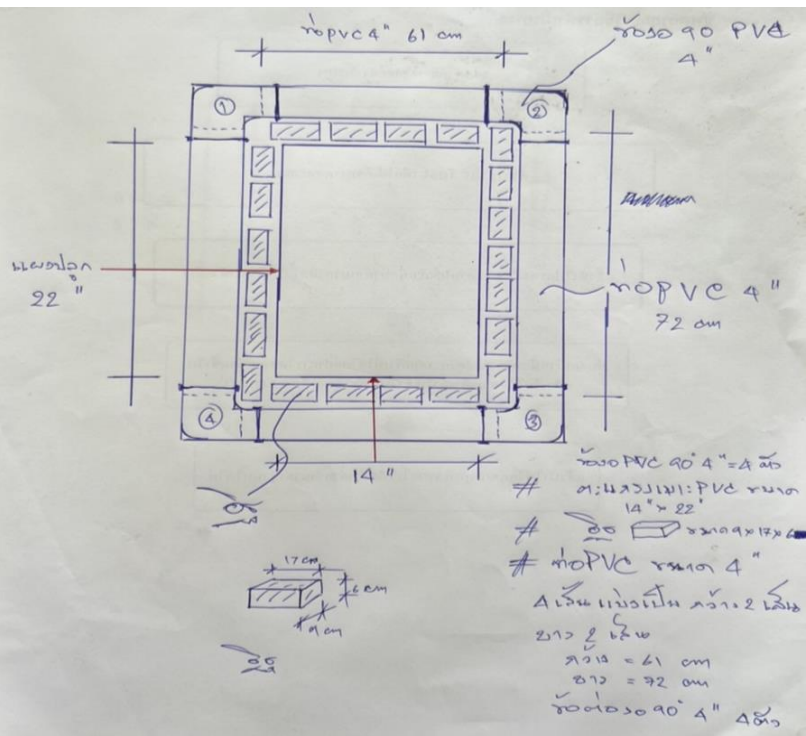 ท่อpvc 4" 61 cm
ข้องอ 90 PVC
4"
①
②
แผงปลูก
22"
ท่อPVC 4"
72 cm
④
③
14"
ข้องอ PVC 90° 4" = 4 ตัว
# ตะแกรงเพาะ PVC ขนาด
14" x 22"
# ขนาด 9x17x6
# ท่อPVC ขนาด 4"
4 เส้น แบ่งเป็น กว้าง 2 เส้น
ยาว 2 เส้น
กว้าง = 61 cm
ยาว = 72 cm
ข้อต่องอ 90° 4" 4 ตัว
17 cm
6 cm
9 cm